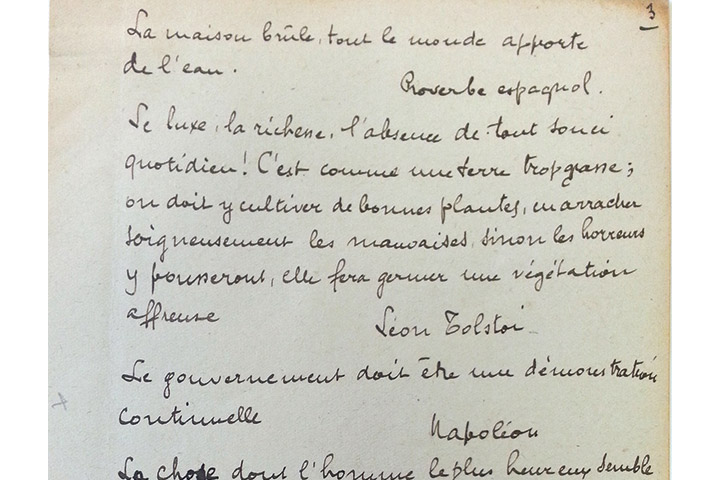 3
La maison brûle, tout le monde apporte
de l'eau.
Proverbe espagnol.
Le luxe, la richesse, l'absence de tout souci
quotidien! C'est comme une terre trop grasse;
on doit y cultiver de bonnes plantes, en arracher
soigneusement les mauvaises, sinon les horreurs
y pousseront, elle fera germer une végétation
affreuse
Léon Tolstoi
Le gouvernement doit être une démonstration
continuelle
Napoléon
La chose dont l'homme le plus heureux semble